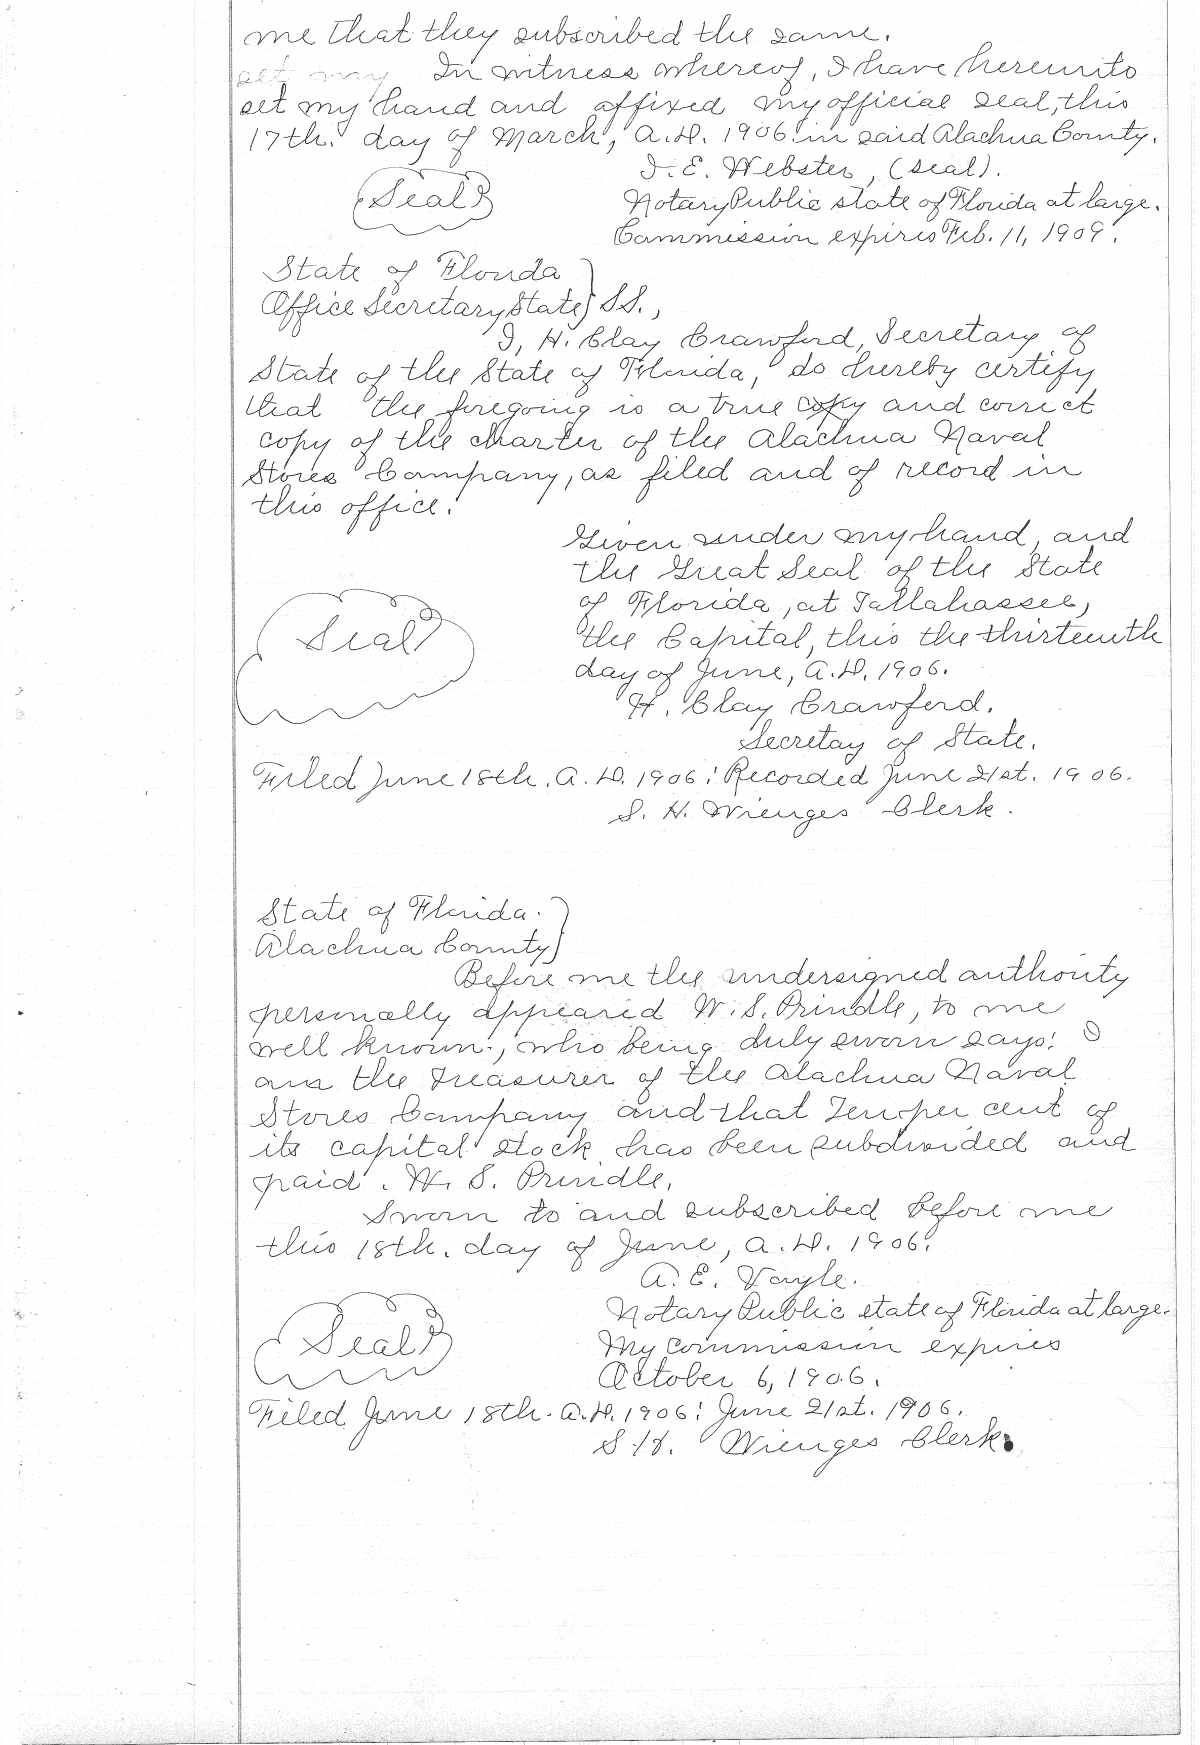 me that they subscribed the same.
set my In witness whereof, I have hereunto
set my hand and affixed my official seal, this
17th. day of March, A.D. 1906. in said Alachua County.
I. E. Webster, (seal).
Seal
Notary Public state of Florida at large.
Commission expires Feb. 11, 1909.
State of Florida
Office Secretary State} SS.,
I, H. Clay Crawford, Secretary of
State of the State of Florida, do hereby certify
that the foregoing is a true copy and correct
copy of the charter of the Alachua Naval
Stores Company, as filed and of record in
this office.
Given under my hand, and
the Great Seal of the State
of Florida, at Tallahassee,
Seal
the Capital, this the thirteenth
day of June, A.D. 1906.
H. Clay Crawford.
Secretay of State.
Filed June 18th. A.D. 1906: Recorded June 21st. 1906.
S. H. Wienges Clerk.
State of Florida.
Alachua County}
Before me the undersigned authority
personally appeared W. S. Prindle, to me
well known, who being duly sworn says: I
am the treasurer of the Alachua Naval
Stores Company and that Ten per cent of
its capital stock has been subdivided and
paid. W. S. Prindle.
Sworn to and subscribed before me
this 18th. day of June, A.D. 1906.
A. E. Voyle.
Notary Public state of Florida at large.
Seal
My commission expires
October 6, 1906.
Filed June 18th. A.D. 1906: June 21st. 1906.
S H. Wienges Clerk.